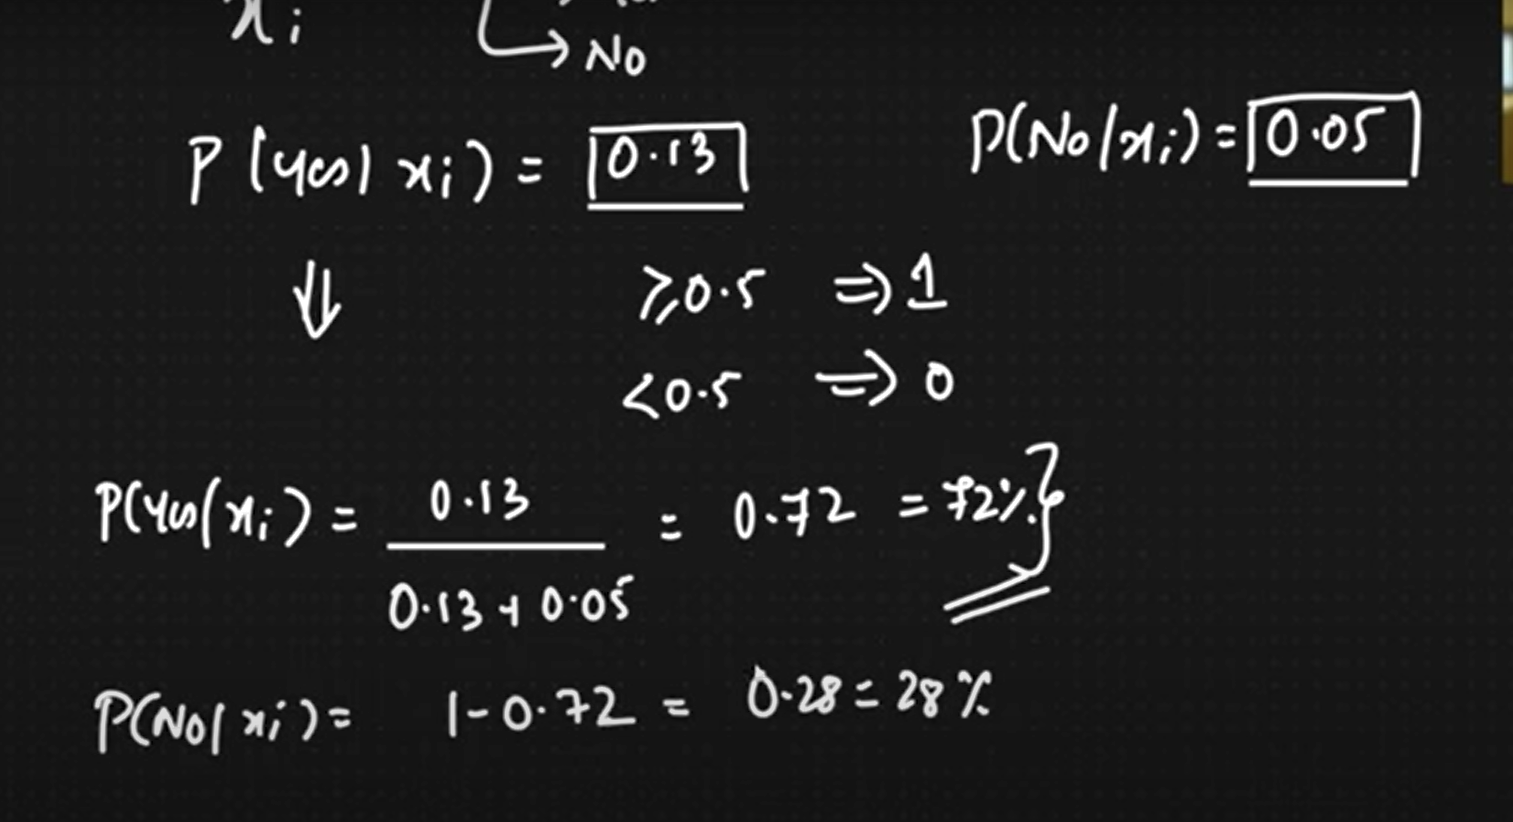 xi → No
P(Yes|xi) = 0.13 P(No/xi) = 0.05
⇓ ≥0.5 ⇒ 1
<0.5 ⇒ 0
P(Yes/xi) = 0.13 / 0.13 + 0.05 = 0.72 = 72%
P(No|xi) = 1-0.72 = 0.28 = 28%